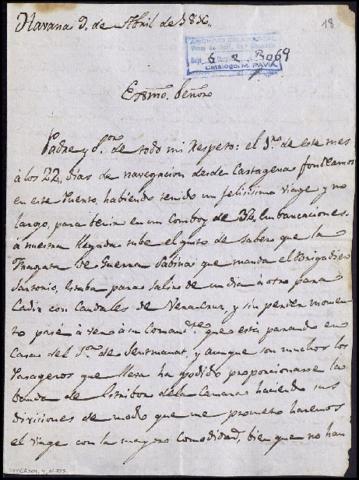 Havana 9. de Abril de 18
18
6 2 3069
Exsmo. Señor
Padre y Sor. de todo mi respeto: el 1º. de este mes
à los 22 dias de navegacion desde Cartagena fondeamos
en este Puerto, habiendo tenido un felicisimo viage y no
largo, para venir en un comboy de 32, embarcaciones.
à nuestra llegada tube el gusto de saber que la
Fragata de Guerra Sabina que manda el Brigadier
estaba para salir de un dia à otro para
Cadiz con Caudales de Veracruz, y sin perder momen
to pasé à ver à su Comante. que està parando en
Casa del Sor. de y aunque son muchos los
Pasageros que lleva ha podido proporcionarse la
de dela Camara haciendo sus
diviciones de modo que me prometo haremos
el viage con la mayor comodidad, bien que no han